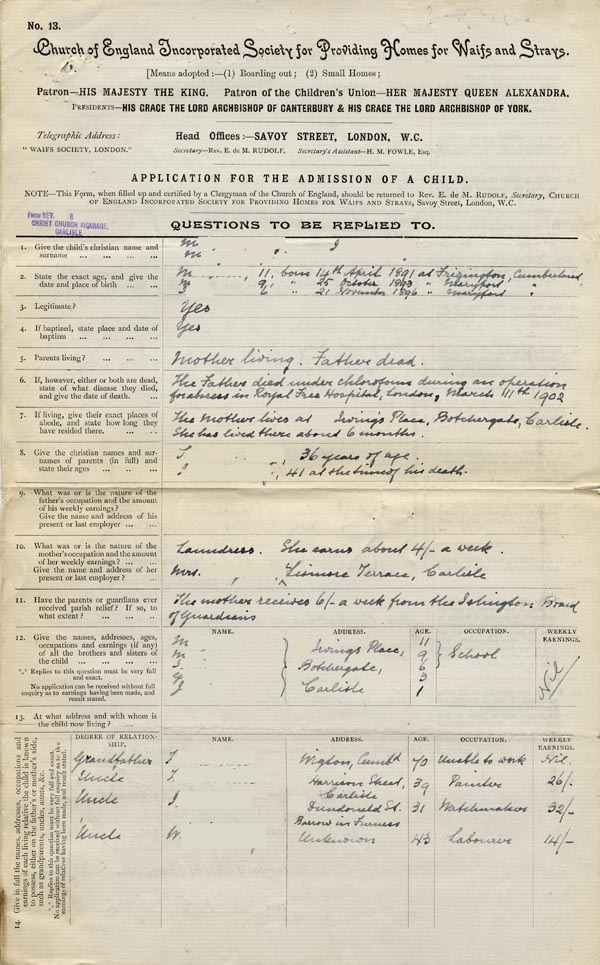 No. 13.
Church of England Incorporated Society for Providing Homes for Waifs and Strays.
[Means adopted:—(1) Boarding out; (2) Small Homes;
Patron—HIS MAJESTY THE KING. Patron of the Children's Union—HER MAJESTY QUEEN ALEXANDRA.
PRESIDENTS—HIS GRACE THE LORD ARCHBISHOP OF CANTERBURY & HIS GRACE THE LORD ARCHBISHOP OF YORK.
Telegraphic Address: Head Offices:—SAVOY STREET, LONDON, W.C.
"WAIFS SOCIETY, LONDON." Secretary—Rev. E. de M. RUDOLF. Secretary's Assistant—H. M. FOWLE, Esq.
APPLICATION FOR THE ADMISSION OF A CHILD.
NOTE—This Form, when filled up and certified by a Clergyman of the Church of England, should be returned to Rev. E. de M. RUDOLF, Secretary, CHURCH
OF ENGLAND INCORPORATED SOCIETY FOR PROVIDING HOMES FOR WAIFS AND STRAYS, Savoy Street, London, W.C.
From REV.
CHRIST CHURCH VICARAGE,
CARLISLE
QUESTIONS TO BE REPLIED TO.
1. Give the child's christian name and surname ... M I
M
2. State the exact age, and give the date and place of birth ... M 11, born 14th April 1891 at Frizington, Cumberland
M 9, " 25 October 1893 " Maryport "
I 6 " 21 November 1896 " Maryport "
3. Legitimate? ... Yes
4. If baptized, state place and date of baptism ... Yes
5. Parents living? ... Mother living. Father dead.
6. If, however, either or both are dead, state of what disease they died, and give the date of death. ... The Father died under chloroform during an operation
for abscess in Royal Free Hospital, London, March 11th 1902
7. If living, give their exact places of abode, and state how long they have resided there. ... The mother lives at Irving's Place, Botchergate, Carlisle.
She has lived there about 6 months.
8. Give the christian names and surnames of parents (in full) and state their ages ... I , 36 years of age.
I , 41 at the time of his death.
9. What was or is the nature of the father's occupation and the amount of his weekly earnings?
Give the name and address of his present or last employer ...
10. What was or is the nature of the mother's occupation and the amount of her weekly earnings? ... Laundress. She earns about 4/- a week.
Give the name and address of her present or last employer? ... Mrs. , Lismore Terrace, Carlisle
11. Have the parents or guardians ever received parish relief? If so, to what extent? ... The mother receives 6/- a week from the Islington Board
of Guardians
12. Give the names, addresses, ages, occupations and earnings (if any) of all the brothers and sisters of the child ...
*** Replies to this question must be very full and exact.
No application can be received without full enquiry as to earnings having been made, and result stated.
NAME. ADDRESS. AGE. OCCUPATION. WEEKLY EARNINGS.
M Irving's Place, 11
M 9 School
I. Botchergate, 6 Nil
G 3
J Carlisle 1
13. At what address and with whom is the child now living? ...
14. Give in full the names, addresses, occupations and earnings of each living relative the child is known to possess, either on the father's or mother's side, such as grandparents, uncles, aunts, &c.
*** Replies to this question must be very full and exact. No application can be received without full enquiry as to the earnings of relatives having been made, and result stated.
DEGREE OF RELATIONSHIP. NAME. ADDRESS. AGE. OCCUPATION. WEEKLY EARNINGS.
Grandfather I Wigton, Cumbd 70 Unable to work Nil.
Uncle I. Harrison Street, Carlisle 39 Painter 26/-
Uncle I. Dundonald St. Barrow in Furness 31 Watchmaker 32/-
Uncle W. Unknown 43 Labourer 14/-